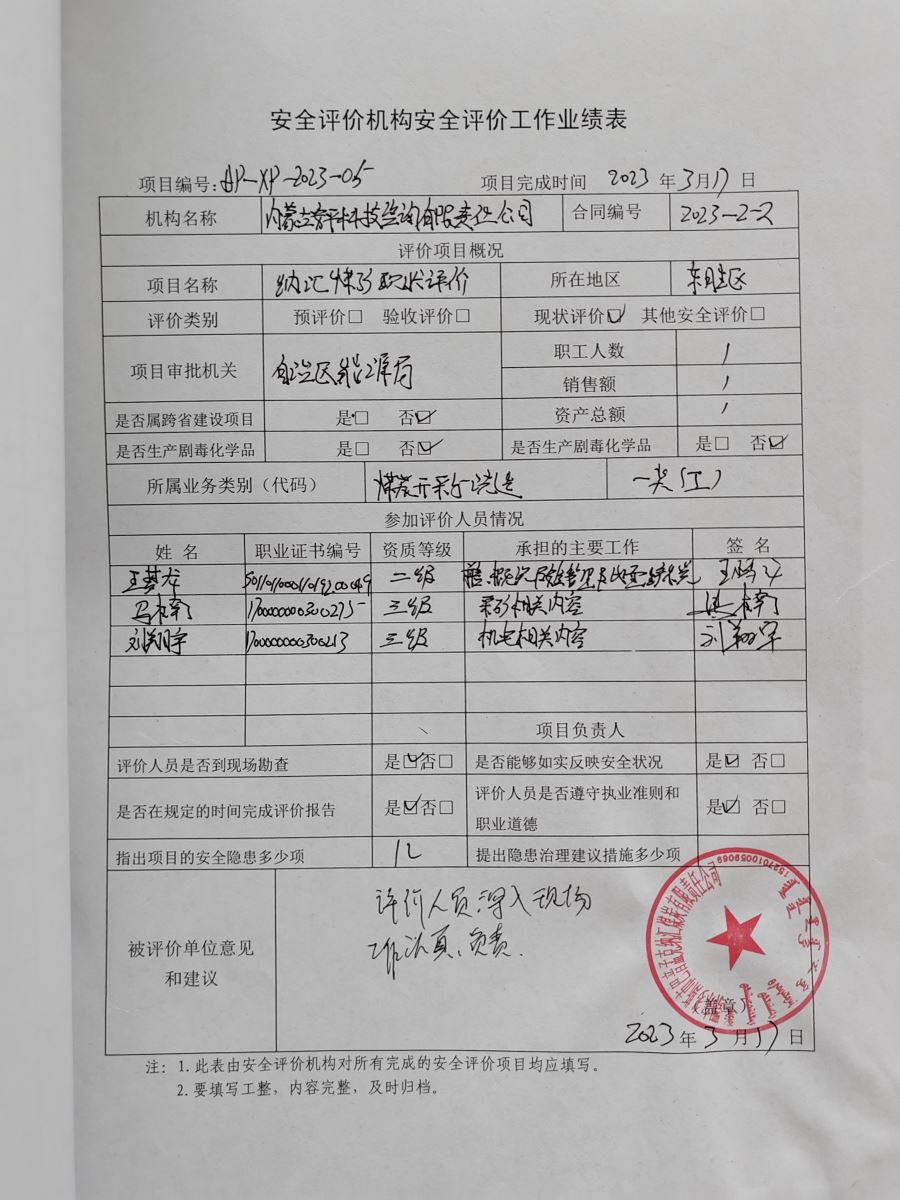 安全评价机构安全评价工作业绩表
项目编号:AP-XP-2023-05 项目完成时间 2023 年 3 月 17 日
机构名称 内蒙古 科技咨询有限责任公司 合同编号 2023-2-2
评价项目概况
项目名称 纳汇煤矿现状评价 所在地区 东胜区
评价类别 预评价□ 验收评价□ 现状评价☑ 其他安全评价□
项目审批机关 自治区能源局 职工人数 /
销售额 /
是否属跨省建设项目 是□ 否☑ 资产总额 /
是否生产剧毒化学品 是□ 否☑ 是否生产剧毒化学品 是□ 否☑
所属业务类别（代码） 煤炭开采 一类(1)
参加评价人员情况
姓 名 职业证书编号 资质等级 承担的主要工作 签 名
二级
1700000000300275 三级 采矿相关内容
刘翔宇 1700000000300213 三级 机电相关内容 刘翔宇
项目负责人
评价人员是否到现场勘查 是☑否□ 是否能够如实反映安全状况 是☑ 否□
是否在规定的时间完成评价报告 是☑否□ 评价人员是否遵守执业准则和
职业道德 是☑ 否□
指出项目的安全隐患多少项 12 提出隐患治理建议措施多少项
被评价单位意见
和建议
评价人员深入现场
工作认真、负责.
1527010059069
（盖章）
2023 年 3 月 17 日
注： 1. 此表由安全评价机构对所有完成的安全评价项目均应填写。
2. 要填写工整，内容完整，及时归档。